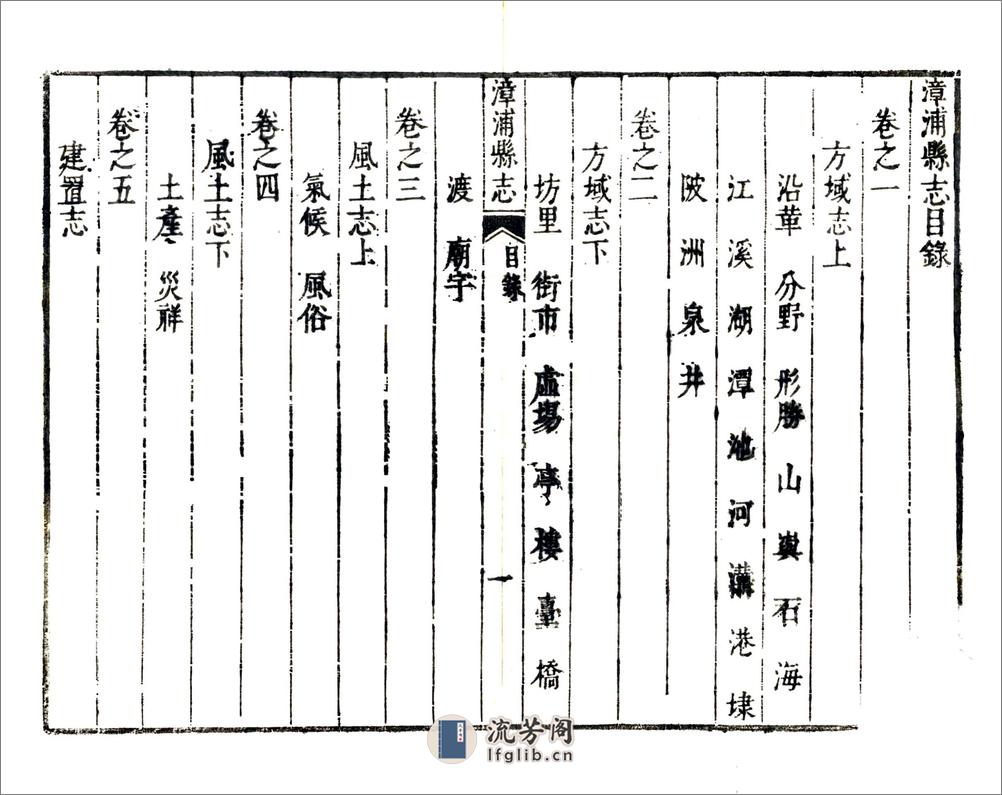 漳浦縣志目錄
卷之一
方域志上
沿革 分野 形勝 山 輿 石 海
江 溪 湖 潭 池 河 溝 港 埭
陂 洲 泉 井
卷之二
方域志下
坊里 街市 虛場 亭 樓 臺 橋
漳浦縣志 目錄 一
渡 廟宇
卷之三
風土志上
氣候 風俗
卷之四
風土志下
土產 災祥
卷之五
建置志
流芳阁
lfglib.cn